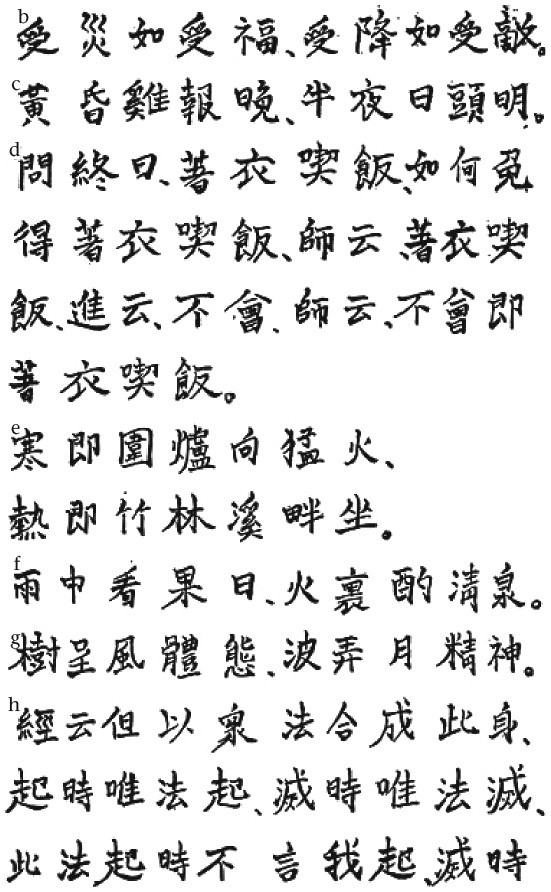 b受災如受福、受降如受敵。
c黃昏雞報曉、半夜日頭明。
d問終日、著衣喫飯、如何免
得著衣喫飯、師云、著衣喫
飯、進云、不會、師云、不會即
著衣喫飯。
e寒即圍爐向猛火、
熱即竹林溪畔坐。
f雨中看果日、火裏酌清泉。
g樹呈風體態、波弄月精神。
h經云但以衆法合成此身、
起時唯法起、滅時唯法滅、
此法起時不言我起、滅時